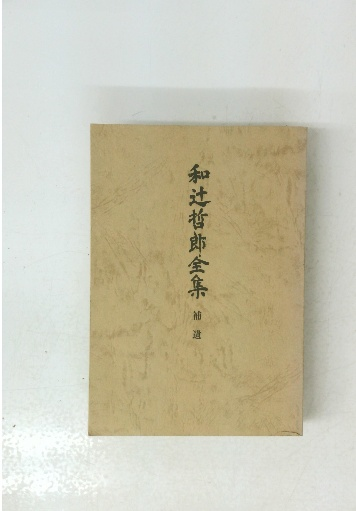 和辻哲郎全集
補遺